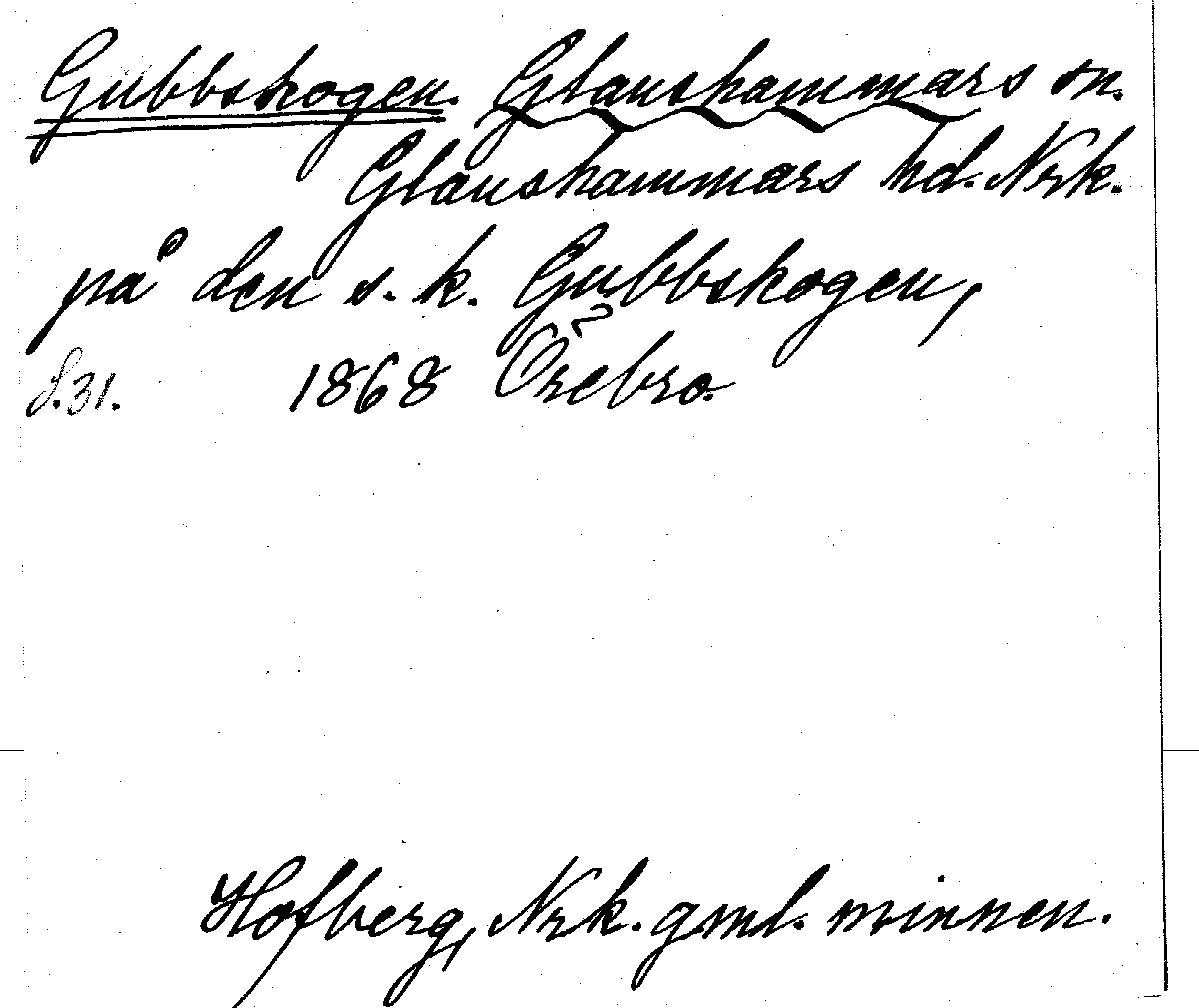 Gubbskogen. Glanshammars sn.
Glanshammars hd. Nrk.
på den s.k. Gubbskogen,
S. 31. 1868 Örebro.
Hofberg, Nrk. gml. minnen.